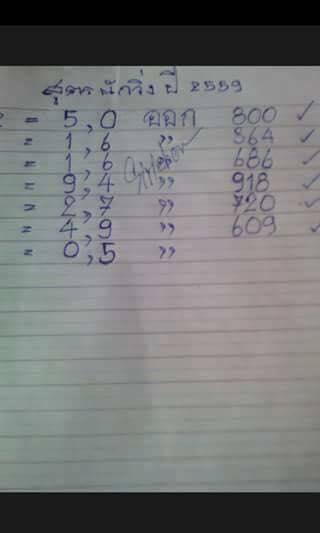 สูตร นักวิ่ง ปี 2559
= 5,0 ออก 800 ✓
= 1,6 " 864 ✓
= 1,6 " 686 ✓
= 9,4 " 918 ✓
= 2,7 " 720 ✓
= 4,9 " 609 ✓
= 0,5 "